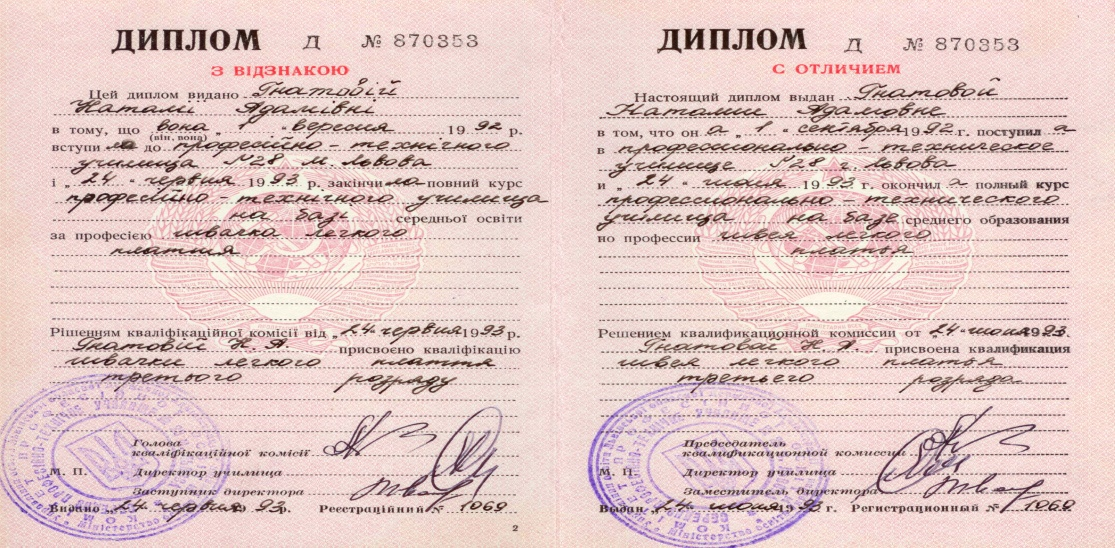 ДИПЛОМ Д № 870353
З ВІДЗНАКОЮ
Цей диплом видано Гнатовій
Наталії Адамівні
в тому, що вона „ 1 " вересня 1992 р.
(він, вона)
вступила до професійно-технічного
училища №28 м. Львова
і „ 24 " червня 1993 р. закінчила повний курс
професійно-технічного училища
на базі середньої освіти
за професією швачка легкого
плаття
Рішенням кваліфікаційної комісії від „ 24 " червня 1993 р.
Гнатовій Н. А. присвоєно кваліфікацію
швачки легкого плаття
третього розряду
Голова
кваліфікаційної комісії
М. П. Директор училища
Заступник директора
Видано „ 24 " червня 1993 р. Реєстраційний № 1069
2
ДИПЛОМ Д № 870353
С ОТЛИЧИЕМ
Настоящий диплом выдан Гнатовой
Наталии Адамовне
в том, что он а „ 1 " сентября 1992 г. поступил а
в профессионально-техническое
училище №28 г. Львова
и „ 24 " июня 1993 г. окончил а полный курс
профессионально-технического
училища на базе среднего образования
по профессии швея легкого
платья
Решением квалификационной комиссии от „ 24 " июня 1993
Гнатовой Н. А. присвоена квалификация
швея легкого платья
третьего разряда
Председатель
квалификационной комиссии
М. П. Директор училища
Заместитель директора
Выдан „ 24 " июня 1993 г. Регистрационный № 1069